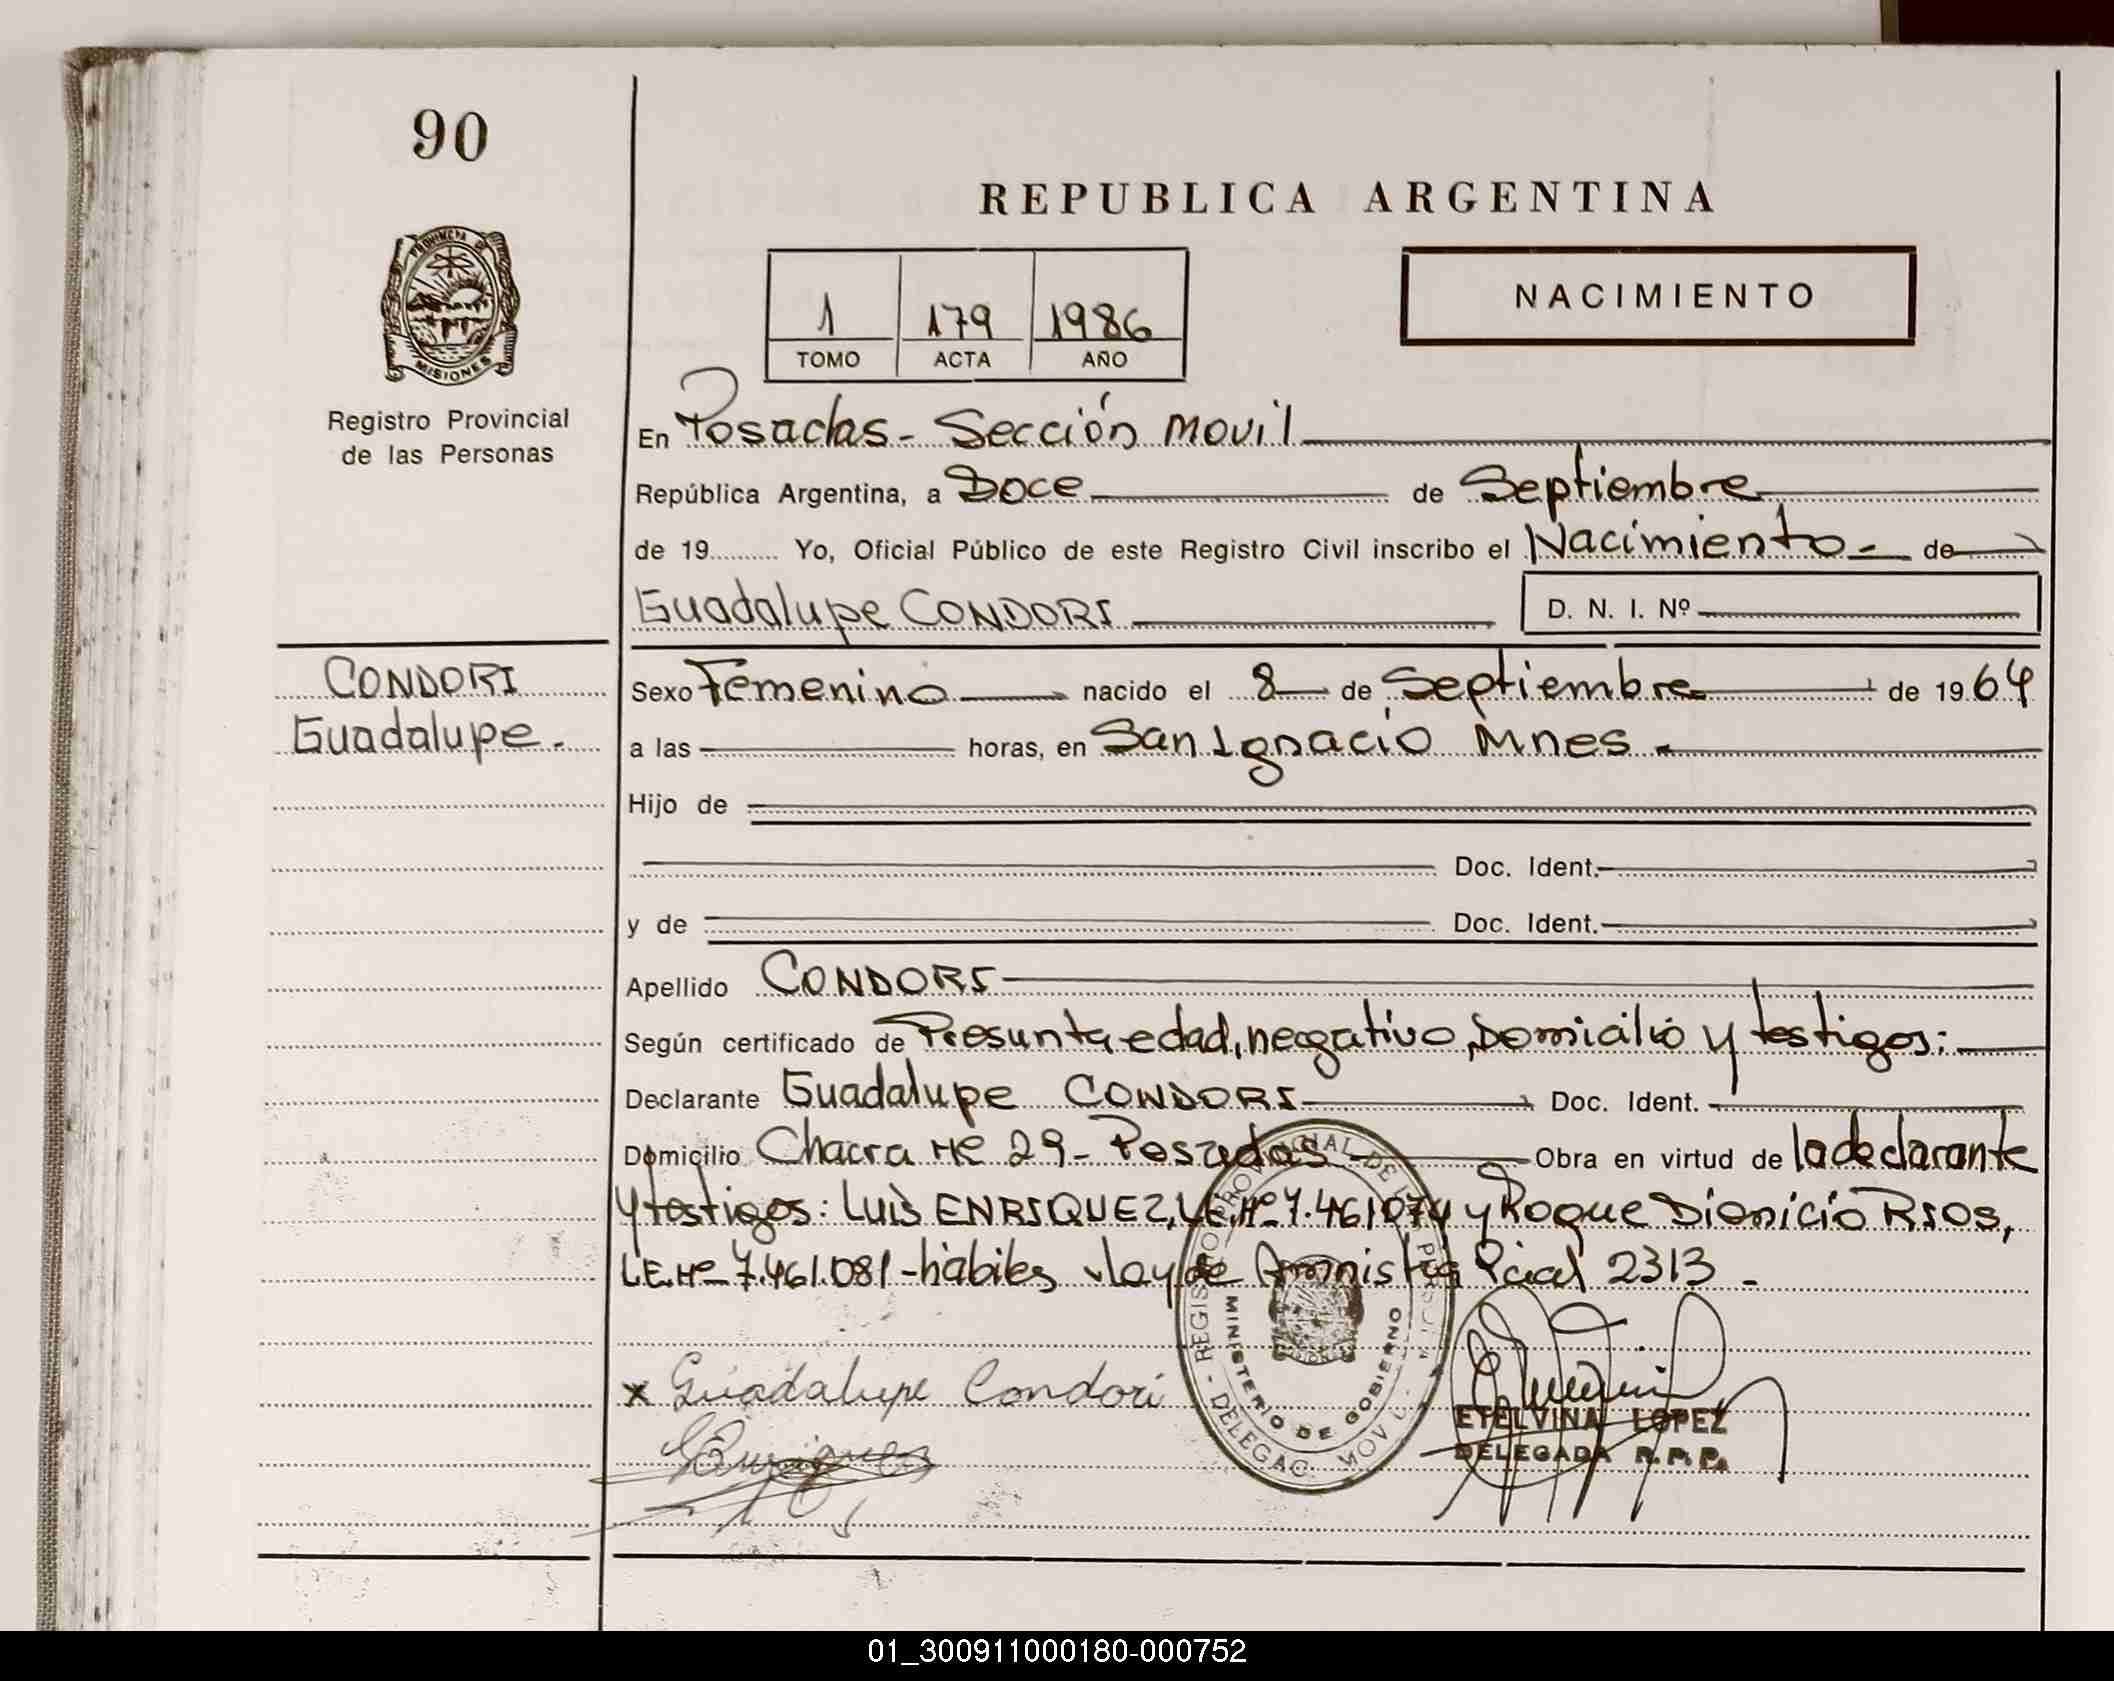 90
REPUBLICA ARGENTINA
PROVINCIA DE
MISIONES
NACIMIENTO
1 179 1986
TOMO ACTA AÑO
Registro Provincial
de las Personas
En Posadas - Sección Movil
República Argentina, a Doce de Septiembre
de 19 Yo, Oficial Público de este Registro Civil inscribo el Nacimiento - de
Guadalupe CONDORI
D. N. I. Nº
CONDORI
Guadalupe.
Sexo Femenino nacido el 8 de Septiembre de 1964
a las horas, en San Ignacio Mnes.
Hijo de
Doc. Ident.
y de Doc. Ident.
Apellido CONDORI
Según certificado de Presunta edad, negativo, Domicilio y testigos:
Declarante Guadalupe CONDORI Doc. Ident.
Domicilio Chacra Nº 29 - Posadas Obra en virtud de la declarante
y testigos: Luis ENRIQUEZ, LE.Nº 7.461.074 y Roque Dionicio RIOS,
LE.Nº 7.461.081 - hábiles y ley de Amnistia Pcial 2313 -
REGISTRO PROVINCIAL DE LAS PERSONAS
MINISTERIO DE GOBIERNO
- DELEGAC. MOVIL -
x Guadalupe Condori
ETELVINA LOPEZ
DELEGADA R. P. P.
01_300911000180-000752